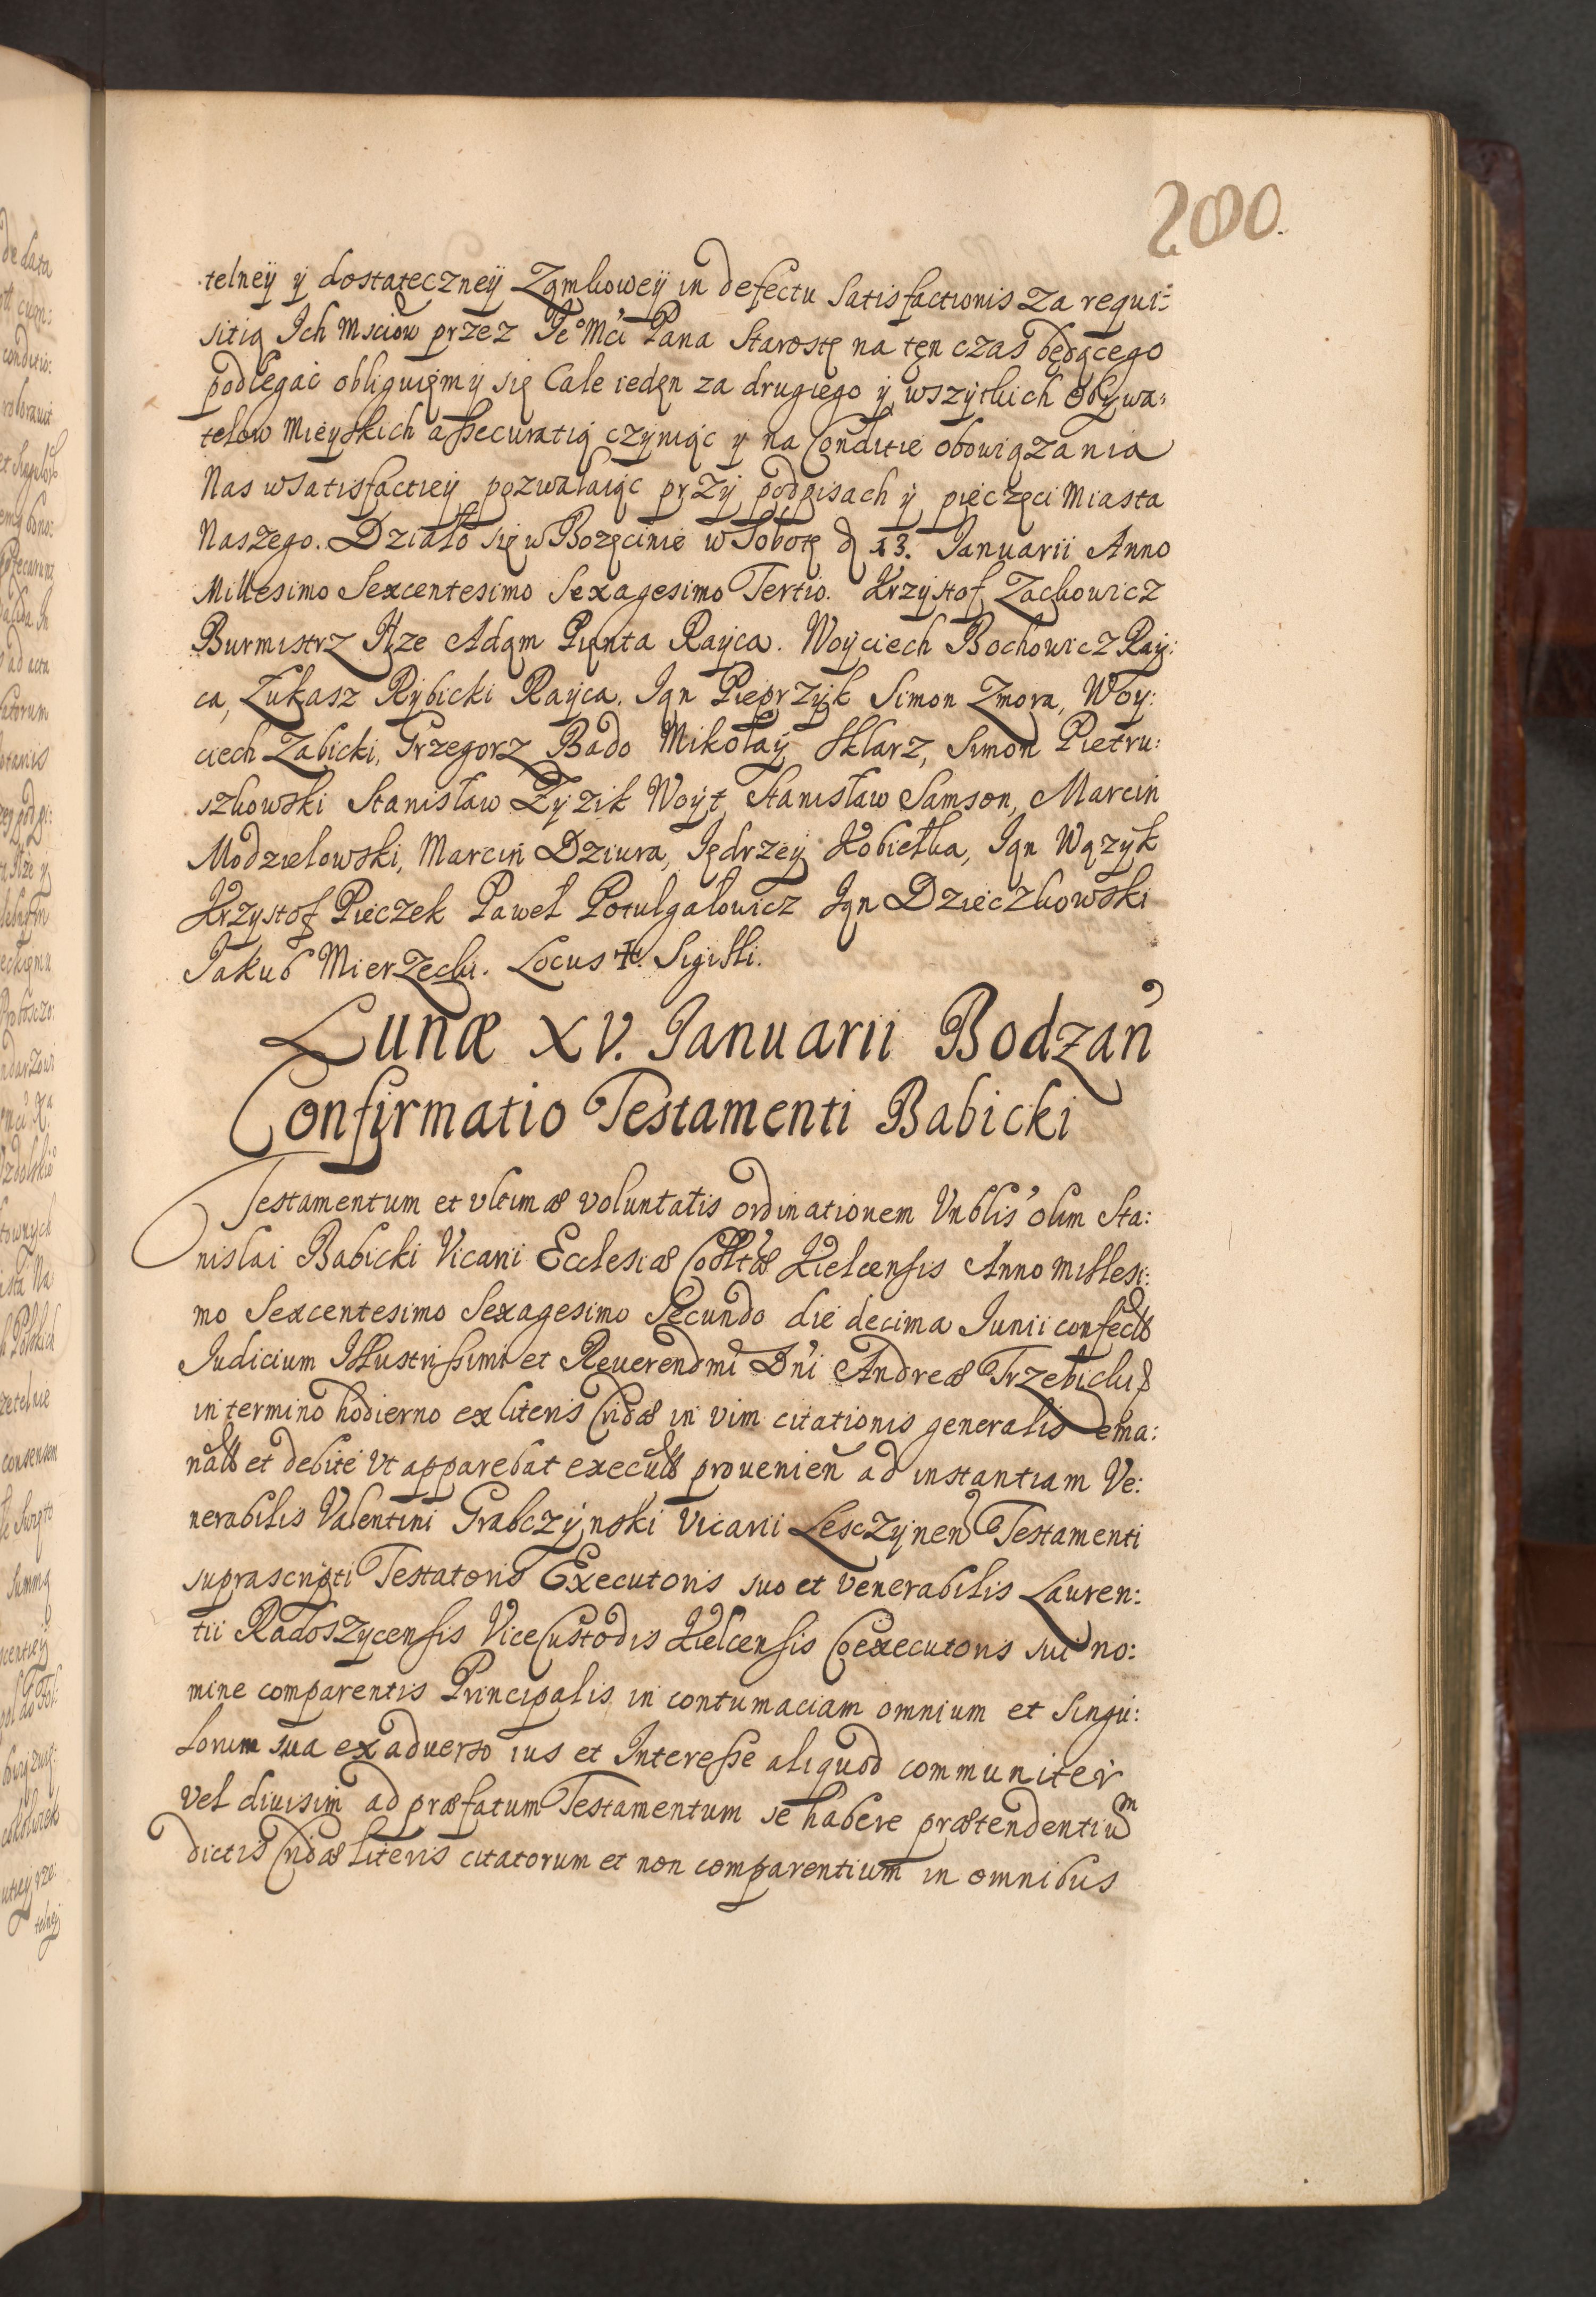 200.
telneÿ ÿ dostateczneÿ Zamkoweÿ in defectu satisfactionis za requi:
sitią Ich Msciow przez Ie° Mci Pana Starostę na ten czas będącego
podlegać obliguięmÿ się Cale ieden za drugiego ÿ wszÿtkich Obÿwa:
telow Mieÿskich assecuratią czÿniąc ÿ na Conditie obowiązania
Nas w satisfactieÿ pozwalaiąc przÿ podpisach ÿ pieczęci Miasta
Naszego. Działo się w Bozęcinie w Sobotę d 13. Ianuarii Anno
Millesimo Sexcentesimo Sexagesimo Tertio. Krzÿstof Zackowicz
Burmistrz Ilze Adam Pianta Raÿca. Woÿciech Bochowicz Raÿ:
ca, Łukasz Rÿbicki Raÿca. Ian Pieprzÿk Simon Zmora, Woÿ:
ciech Zabicki, Grzegorz Bado Mikołaÿ Sklarz, Simon Pietru:
szkowski Stanisław Zÿzik Woÿt, Stanisław Samson, Marcin
Modzielowski, Marcin Dziura, Iędrzeÿ Kobiełka, Ian Wązÿk
Krzÿstof Pieczek Paweł Potulgałowicz Ian Dzieczkowski
Jakub Mierzecki. Locus ✝. Sigilli.
Lunæ XV. Ianuarii Bodzan̄
Confirmatio Testamenti Babicki
Testamentum et vltimæ voluntatis ordinationem Vnblis olim Sta:
nislai Babicki Vicarii Ecclesiæ Colltæ Kielcensis Anno Millesi:
mo Sexcentesimo Sexagesimo Secundo die decima Iunii confect
Judicium Illustrissimi et Reuerendmi Dni Andreæ Trzebicki
in termino hodierno ex literis Cridæ in vim citationis generalis ema:
nat et debite vt apparebat execut prouenien̄ ad instantiam Ve:
nerabilis Valentini Grabczÿnski Vicarii Lesczÿnen Testamenti
suprascripti Testatoris Executoris suo et Venerabilis Lauren:
tii Radoszycensis ViceCustodis Kielcensis Coexecutoris sui no:
mine comparentis Principalis in contumaciam omnium et singu:
lorum sua ex aduerso ius et Interesse aliquod communiter
vel diuisim ad præfatum Testamentum se habere prætendentiu^m
dictis Cridæ literis citatorum et non comparentium in omnibus